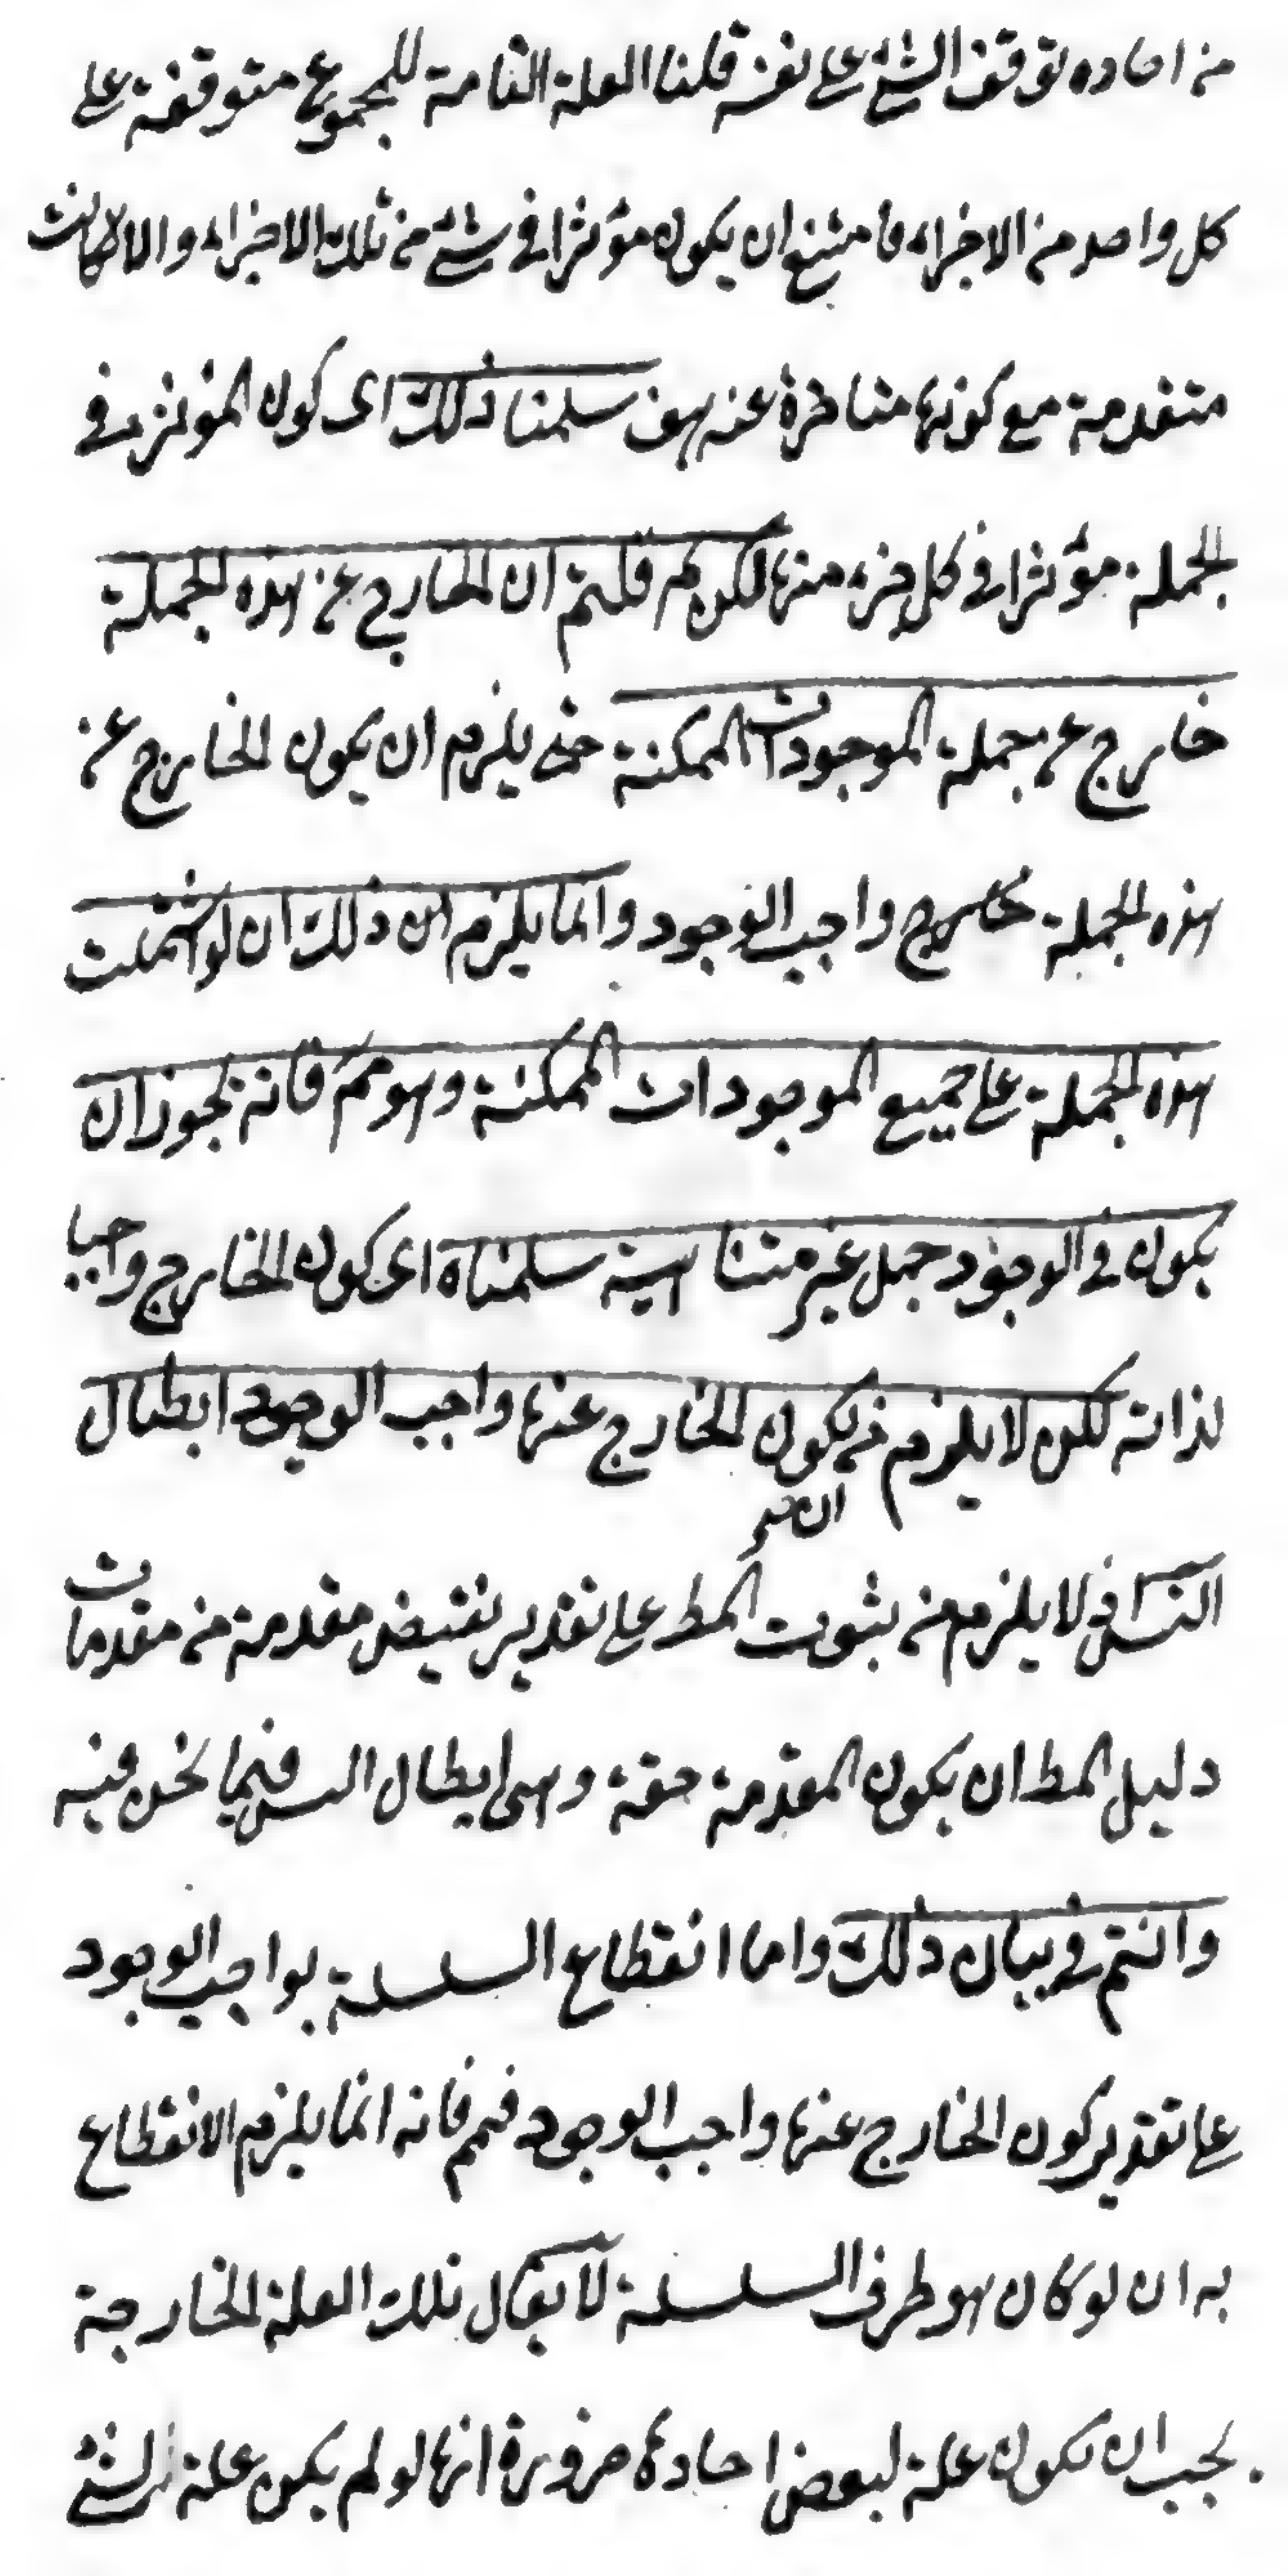 من احاده توقف الشئ على نفسه قلنا العلة التامة للمجموع متوقفة على
كل واحد من الاجزاء فامتنع ان يكون مؤثرا في شئ من تلك الاجزاء والا لكانت
متقدمة مع كونها متاخرة عنه هف سلمنا ذلك اى كون المؤثر في
الجملة مؤثرا في كل جزء منها لكن لم قلتم ان الخارج عن هذه الجملة
خارج عن جملة الموجودات الممكنة حتى يلزم ان يكون الخارج عن
هذه الجملة خارج واجب الوجود وانما يلزم ان ذلك ان لو اشتملت
هذه الجملة على جميع الموجودات الممكنة وهو مم فانه يجوز ان
يكون في الوجود جمل غير متناهية سلمناه اى كون الخارج واجبا
لذاته لكن لا يلزم من كون الخارج عنها واجب الوجود ابطال
التس في لا يلزم من ثبوت المط على تقدير نقيض مقدمة من مقدمات
دليل المط ان يكون المقدمة حقة وهى ابطال التس فيما نحن فيه
وانتم في بيان ذلك واما انقطاع السلسلة بواجب الوجود
على تقدير كون الخارج عنها واجب الوجود فمم فانه انما يلزم الانقطاع
به ان لو كان هو طرف السلسلة لا يقال تلك العلة الخارجة
يجب ان تكون علة لبعض احادها ضرورة انها لو لم يكن علة لشئ